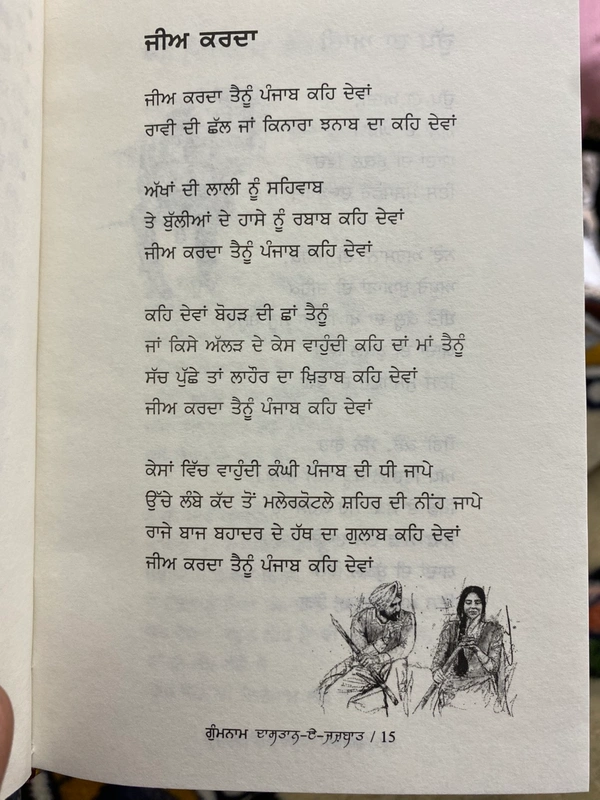 ਜੀਅ ਕਰਦਾ
ਜੀਅ ਕਰਦਾ ਤੈਨੂੰ ਪੰਜਾਬ ਕਹਿ ਦੇਵਾਂ
ਰਾਵੀ ਦੀ ਛੱਲ ਜਾਂ ਕਿਨਾਰਾ ਝਨਾਬ ਦਾ ਕਹਿ ਦੇਵਾਂ
ਅੱਖਾਂ ਦੀ ਲਾਲੀ ਨੂੰ ਸਹਿਵਾਬ
ਤੇ ਬੁੱਲੀਆਂ ਦੇ ਹਾਸੇ ਨੂੰ ਰਬਾਬ ਕਹਿ ਦੇਵਾਂ
ਜੀਅ ਕਰਦਾ ਤੈਨੂੰ ਪੰਜਾਬ ਕਹਿ ਦੇਵਾਂ
ਕਹਿ ਦੇਵਾਂ ਬੋਹੜ ਦੀ ਛਾਂ ਤੈਨੂੰ
ਜਾਂ ਕਿਸੇ ਅੱਲੜ ਦੇ ਕੇਸ ਵਾਹੁੰਦੀ ਕਹਿ ਦਾਂ ਮਾਂ ਤੈਨੂੰ
ਸੱਚ ਪੁੱਛੇ ਤਾਂ ਲਾਹੌਰ ਦਾ ਖ਼ਿਤਾਬ ਕਹਿ ਦੇਵਾਂ
ਜੀਅ ਕਰਦਾ ਤੈਨੂੰ ਪੰਜਾਬ ਕਹਿ ਦੇਵਾਂ
ਕੇਸਾਂ ਵਿੱਚ ਵਾਹੁੰਦੀ ਕੰਘੀ ਪੰਜਾਬ ਦੀ ਧੀ ਜਾਪੇ
ਉੱਚੇ ਲੰਬੇ ਕੱਦ ਤੋਂ ਮਲੇਰਕੋਟਲੇ ਸ਼ਹਿਰ ਦੀ ਨੀਂਹ ਜਾਪੇ
ਰਾਜੇ ਬਾਜ ਬਹਾਦਰ ਦੇ ਹੱਥ ਦਾ ਗੁਲਾਬ ਕਹਿ ਦੇਵਾਂ
ਜੀਅ ਕਰਦਾ ਤੈਨੂੰ ਪੰਜਾਬ ਕਹਿ ਦੇਵਾਂ
ਗੁੰਮਨਾਮ ਦਾਸਤਾਨ-ਏ-ਜਜ਼ਬਾਤ / 15